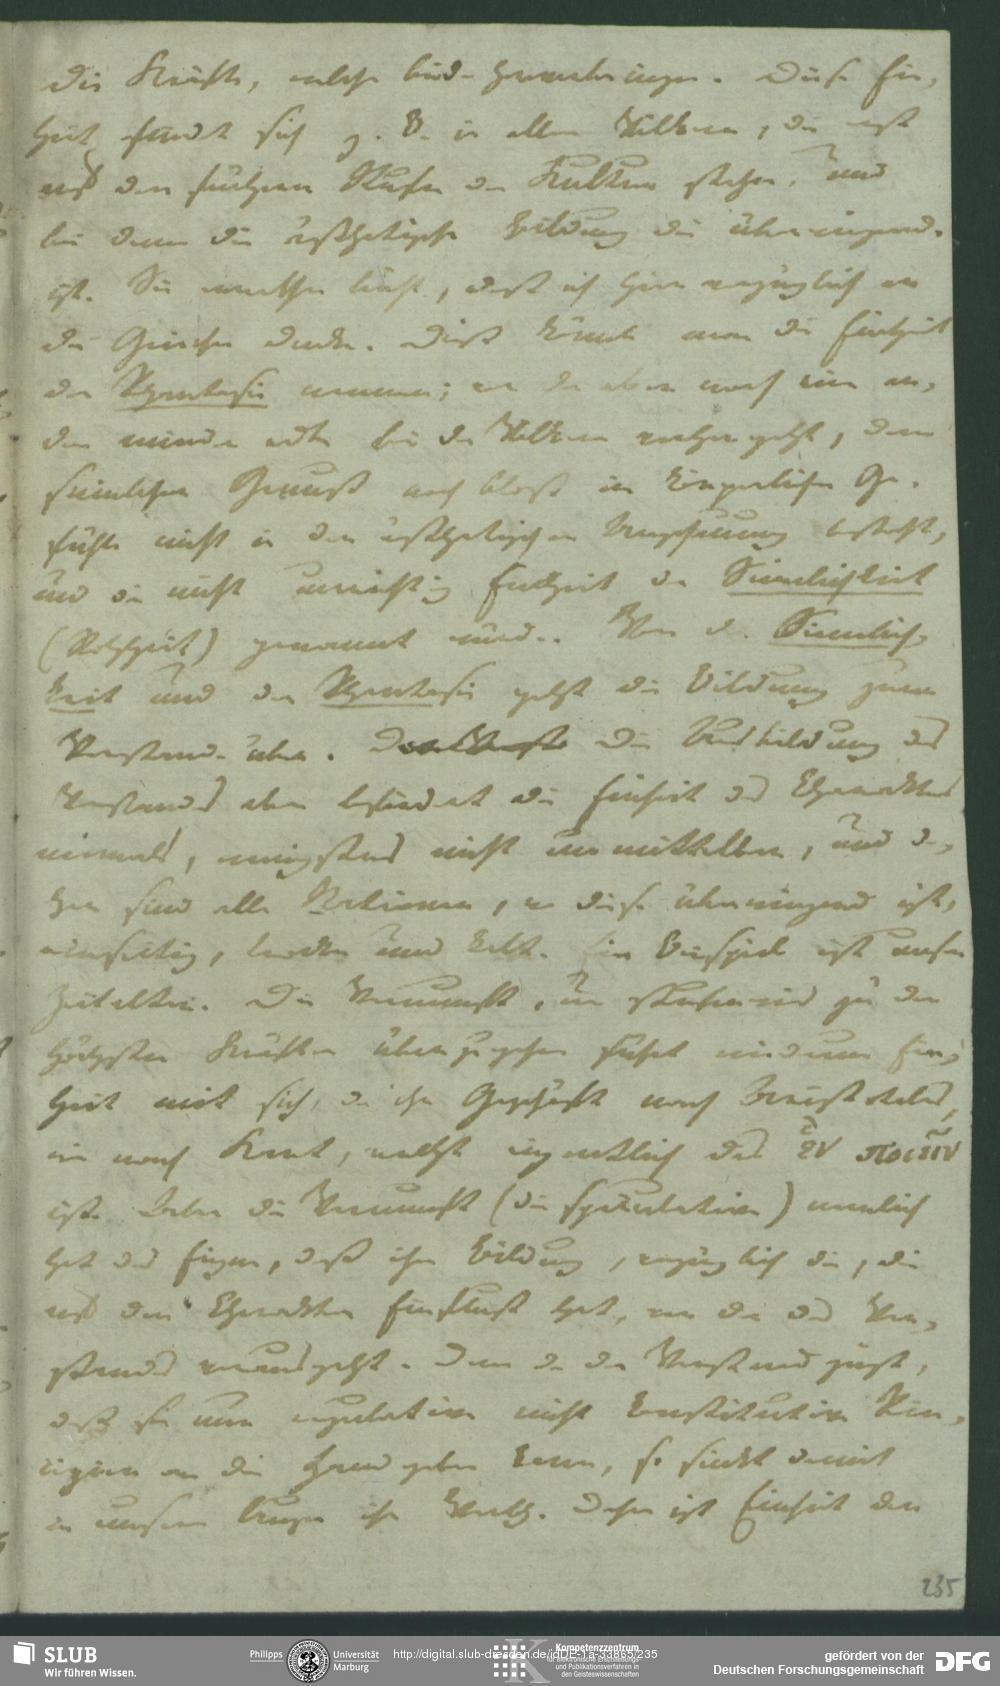 die Kräfte, welche beide hervorbringen. Diese Ein,
heit findet sich z. B. in allen Völkern, die erst
auf den frühern Stufen der Kultur stehn, und
bei denen die ästhetische Bildung die überwiegende
ist. Sie errathen leicht, daß ich hier vorzüglich an
die Griechen denke. Dieß könnte man die Einheit
der Phantasie nennen; vor der aber noch eine an,
dre minder edle bei den Völkern vorhergeht, deren
sinnlicher Genuß noch bloß im körperlichen Ge,
fühle nicht in der ästhetischen Anschauung besteht,
und die nicht unrichtig Einheit der Sinnlichkeit
(Rohheit) genannt wird. Von d. Sinnlich,
keit und der Phantasie geht die Bildung zum
Verstande über. Die Ausbildung des
Verstandes aber befördert die Einheit des Charakters
niemals, wenigstens nicht unmittelbar, und da,
her sind alle Nationen, wo diese überwiegend ist,
einseitig, trocken und kalt. Ein Beispiel ist unser
Zeitalter. Die Vernunft, um stufenweis zu den
höchsten Kräften überzugehen führt wiederum Ein,
heit mit sich, da ihr Geschäft nach Aristoteles,
wie nach Kant, recht eigentlich das ἓν ποιεῖν
ist. Aber die Vernunft (die spekulative) nemlich
hat das Eigne, daß ihre Bildung, vorzüglich die, die
auf den Charakter Einfluß hat, vor der des Ver,
standes vorausgeht. Denn da der Verstand zeigt,
daß sie nur regulative nicht konstitutive Prin,
cipien an die Hand geben kann, so sinkt damit
in unsern Augen ihr Werth. Daher ist Einheit der
235
SLUB
Wir führen Wissen.
Philipps Universität
Marburg
http://digital.slub-dresden.de/idDE-1a-33865/235
Kompetenzzentrum
für elektronische Erschließungs-
und Publikationsverfahren in
den Geisteswissenschaften
gefördert von der
Deutschen Forschungsgemeinschaft
DFG